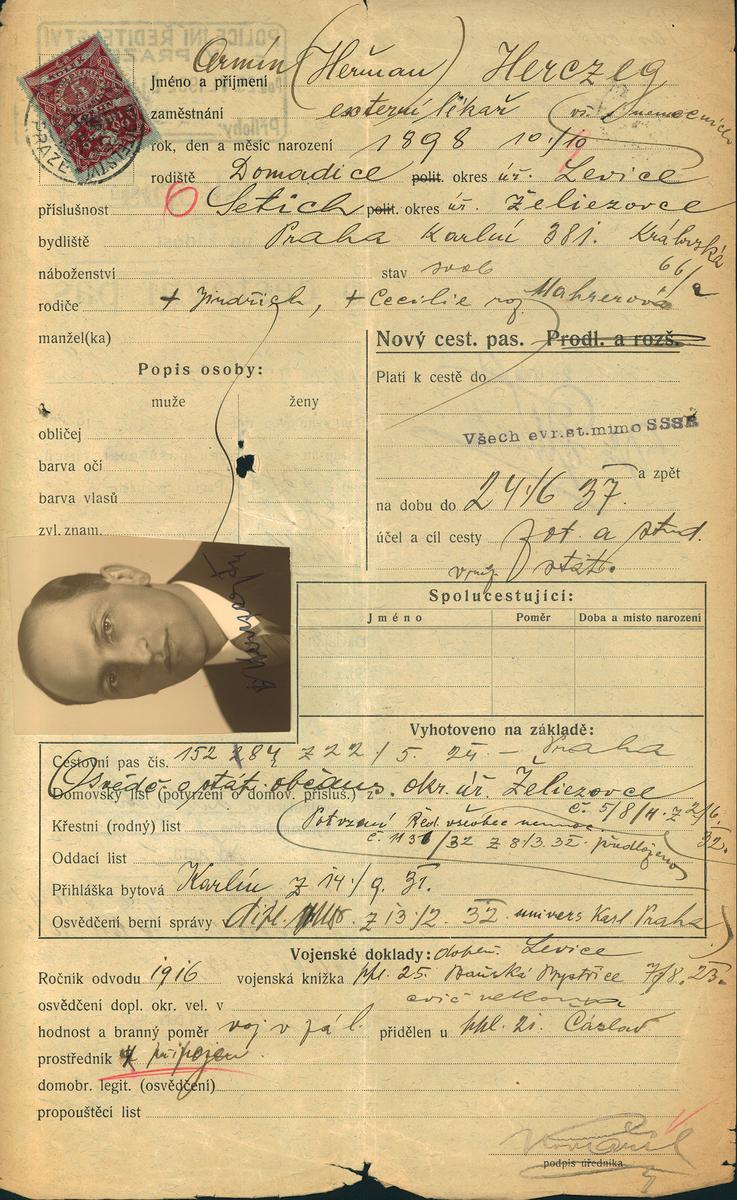 Jméno a příjmení Armin (Heřman) Herczeg
zaměstnání externí lékař
rok, den a měsíc narození 1898 10./10
rodiště Domadice polit. okres úř. Levice
příslušnost 6 Setich polit. okres úř. Želiezovce
bydliště Praha Karlín 381. Královská
66/
náboženství stav svob
rodiče + Jindřich, + Cecilie roz. Mahrerová
manžel(ka)
Nový cest. pas. Prodl. a rozš.
Popis osoby:
muže ženy
Platí k cestě do
obličej
Všech evr.st.mimo SSSR
barva očí
barva vlasů
a zpět
na dobu do 24/6 37.
zvl. znam.
účel a cíl cesty zot. a stud.
Spolucestující:
Jméno Poměr Doba a místo narození
Vyhotoveno na základě:
Cestovní pas čís. 152 Z 22/5. 25 - Praha
Osvědč. o stát. občans. okr. úř. Želiezovce
Domovský list (potvrzení o domov. přísluš.) z
č. 5/8/11. Z 2/6.
32.
Křestní (rodný) list Potvrzení Řed. všeobec nemoc
č. /32 Z 8/3. 32. předloženo
Oddací list
Přihláška bytová Karlín Z 14./9. 31.
Osvědčení berní správy dipl. Z 13/2. 32. univers Karl. Praha
Vojenské doklady: Levice
Ročník odvodu 1916 vojenská knížka ppl. 25. Baňská Bystřice 7/8. 23.
osvědčení dopl. okr. vel. v
hodnost a branný poměr voj v zál. přidělen u ppl. 21. Čáslav
prostředník připojen
domobr. legit. (osvědčení)
propouštěcí list
podpis úředníka.